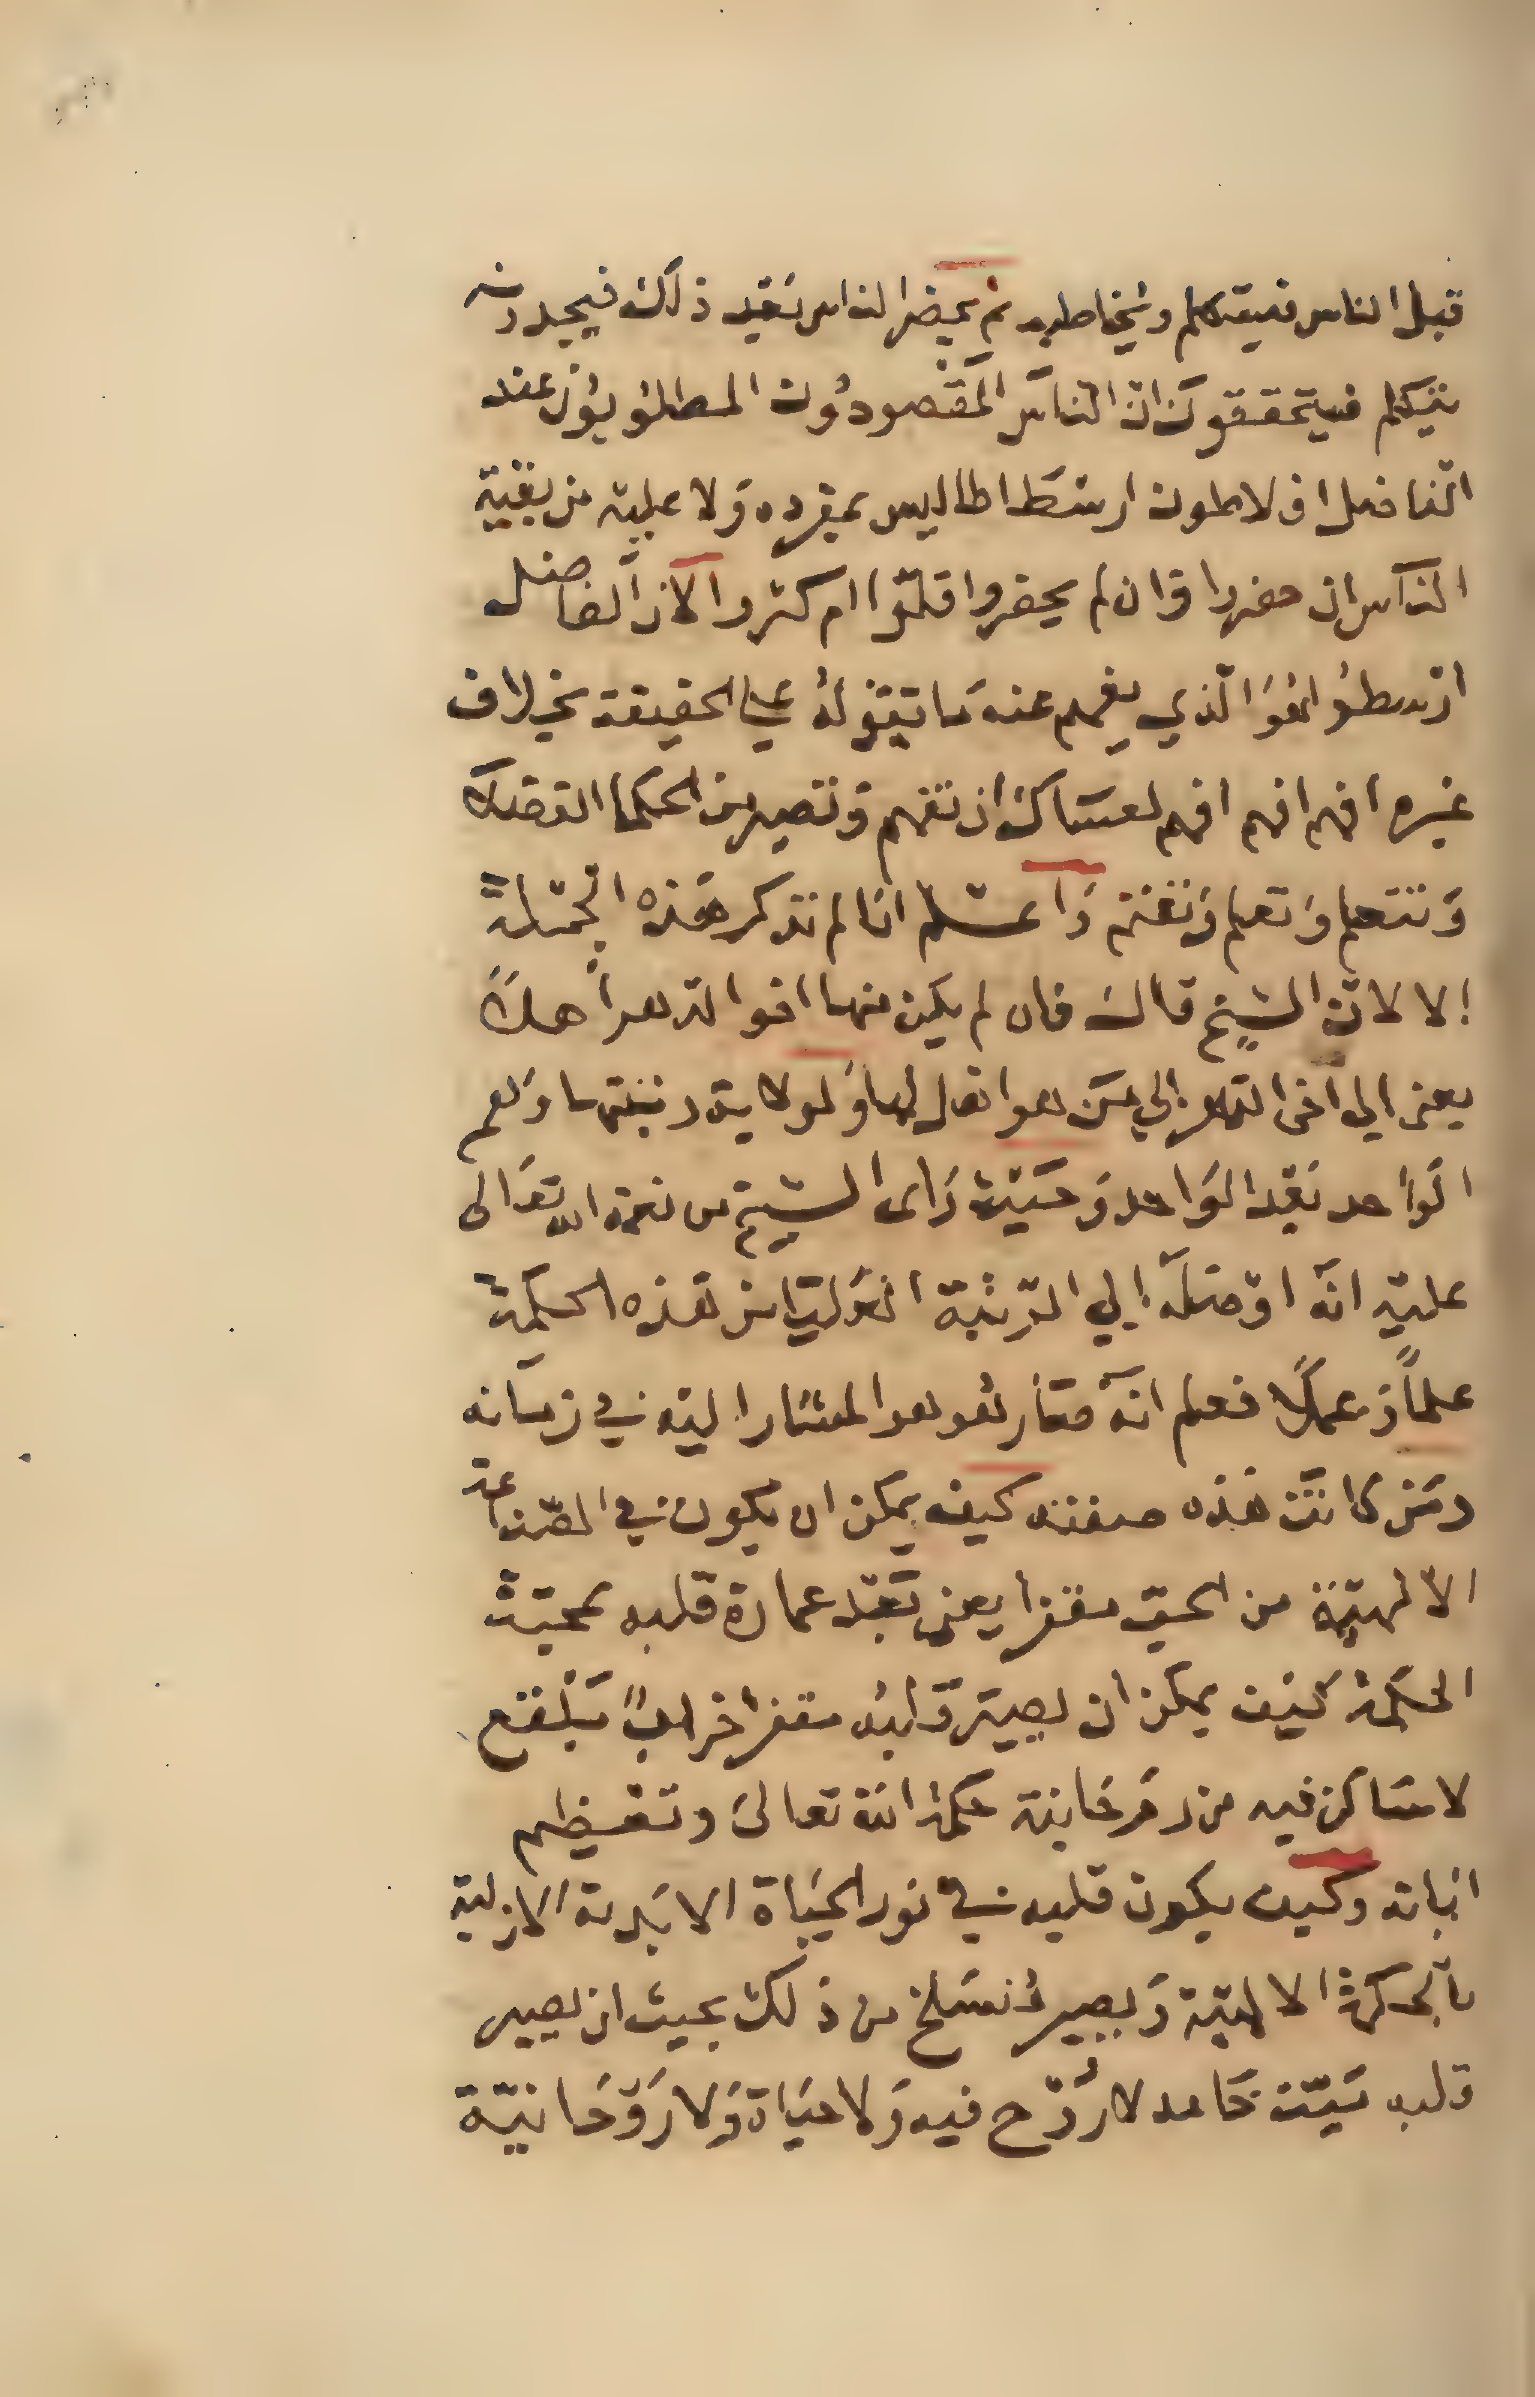 قبل الناس فيتكلم ويخاطب ثم يحضر الناس بعد ذلك فيجدونه
يتكلم فيتحققون ان الناس المقصودون المطلوبون عند
الفاضل افلاطون ارسطاطاليس بمفرده ولا عليه من بقية
الناس ان حضروا وان لم يحضروا قلوا ام كثروا لان الفاضل
ارسطو هو الذي يفهم عنه ما يقوله على الحقيقة بخلاف
غيره افهم افهم افهم لعساك ان تفهم وتصير من الحكما الفضلا
وتتعلم وتعلم وتغنم واعلم انا لم نذكر هذه الجملة
الا لان الشيخ قال فان لم يكن منها اخو الدهر اهلا
يعني الي اخي الدهر الي من هو اهل لها ولو لا يدركنتها وهم
الواحد بعد الواحد وحيث راى الشيخ من نعمة الله تعالى
عليه انه اوصله الي الرتبة العليا من هذه الحكمة
علماً وعملاً فعلم انه صار هو هو المشار اليه في زمانه
ومن كانت هذه صفته كيف يمكن ان يكون في الصناعة
الالهية من الحي مقفرا يعني بعد عمارة قلبه بمحبة
الحكمة كيف يمكن ان يصير قلبه مقفرا خراباً بلقع
لا ساكن فيه من حكمة الله تعالى وتعظيم
اياته وكيف يكون قلبه في نور الحياة الابدية الازلية
بالحكمة الالهية ويصير ينسلخ من ذلك بحيث ان يصير
قلبه ميت خامد لا روح فيه ولا حياة ولا روحانية